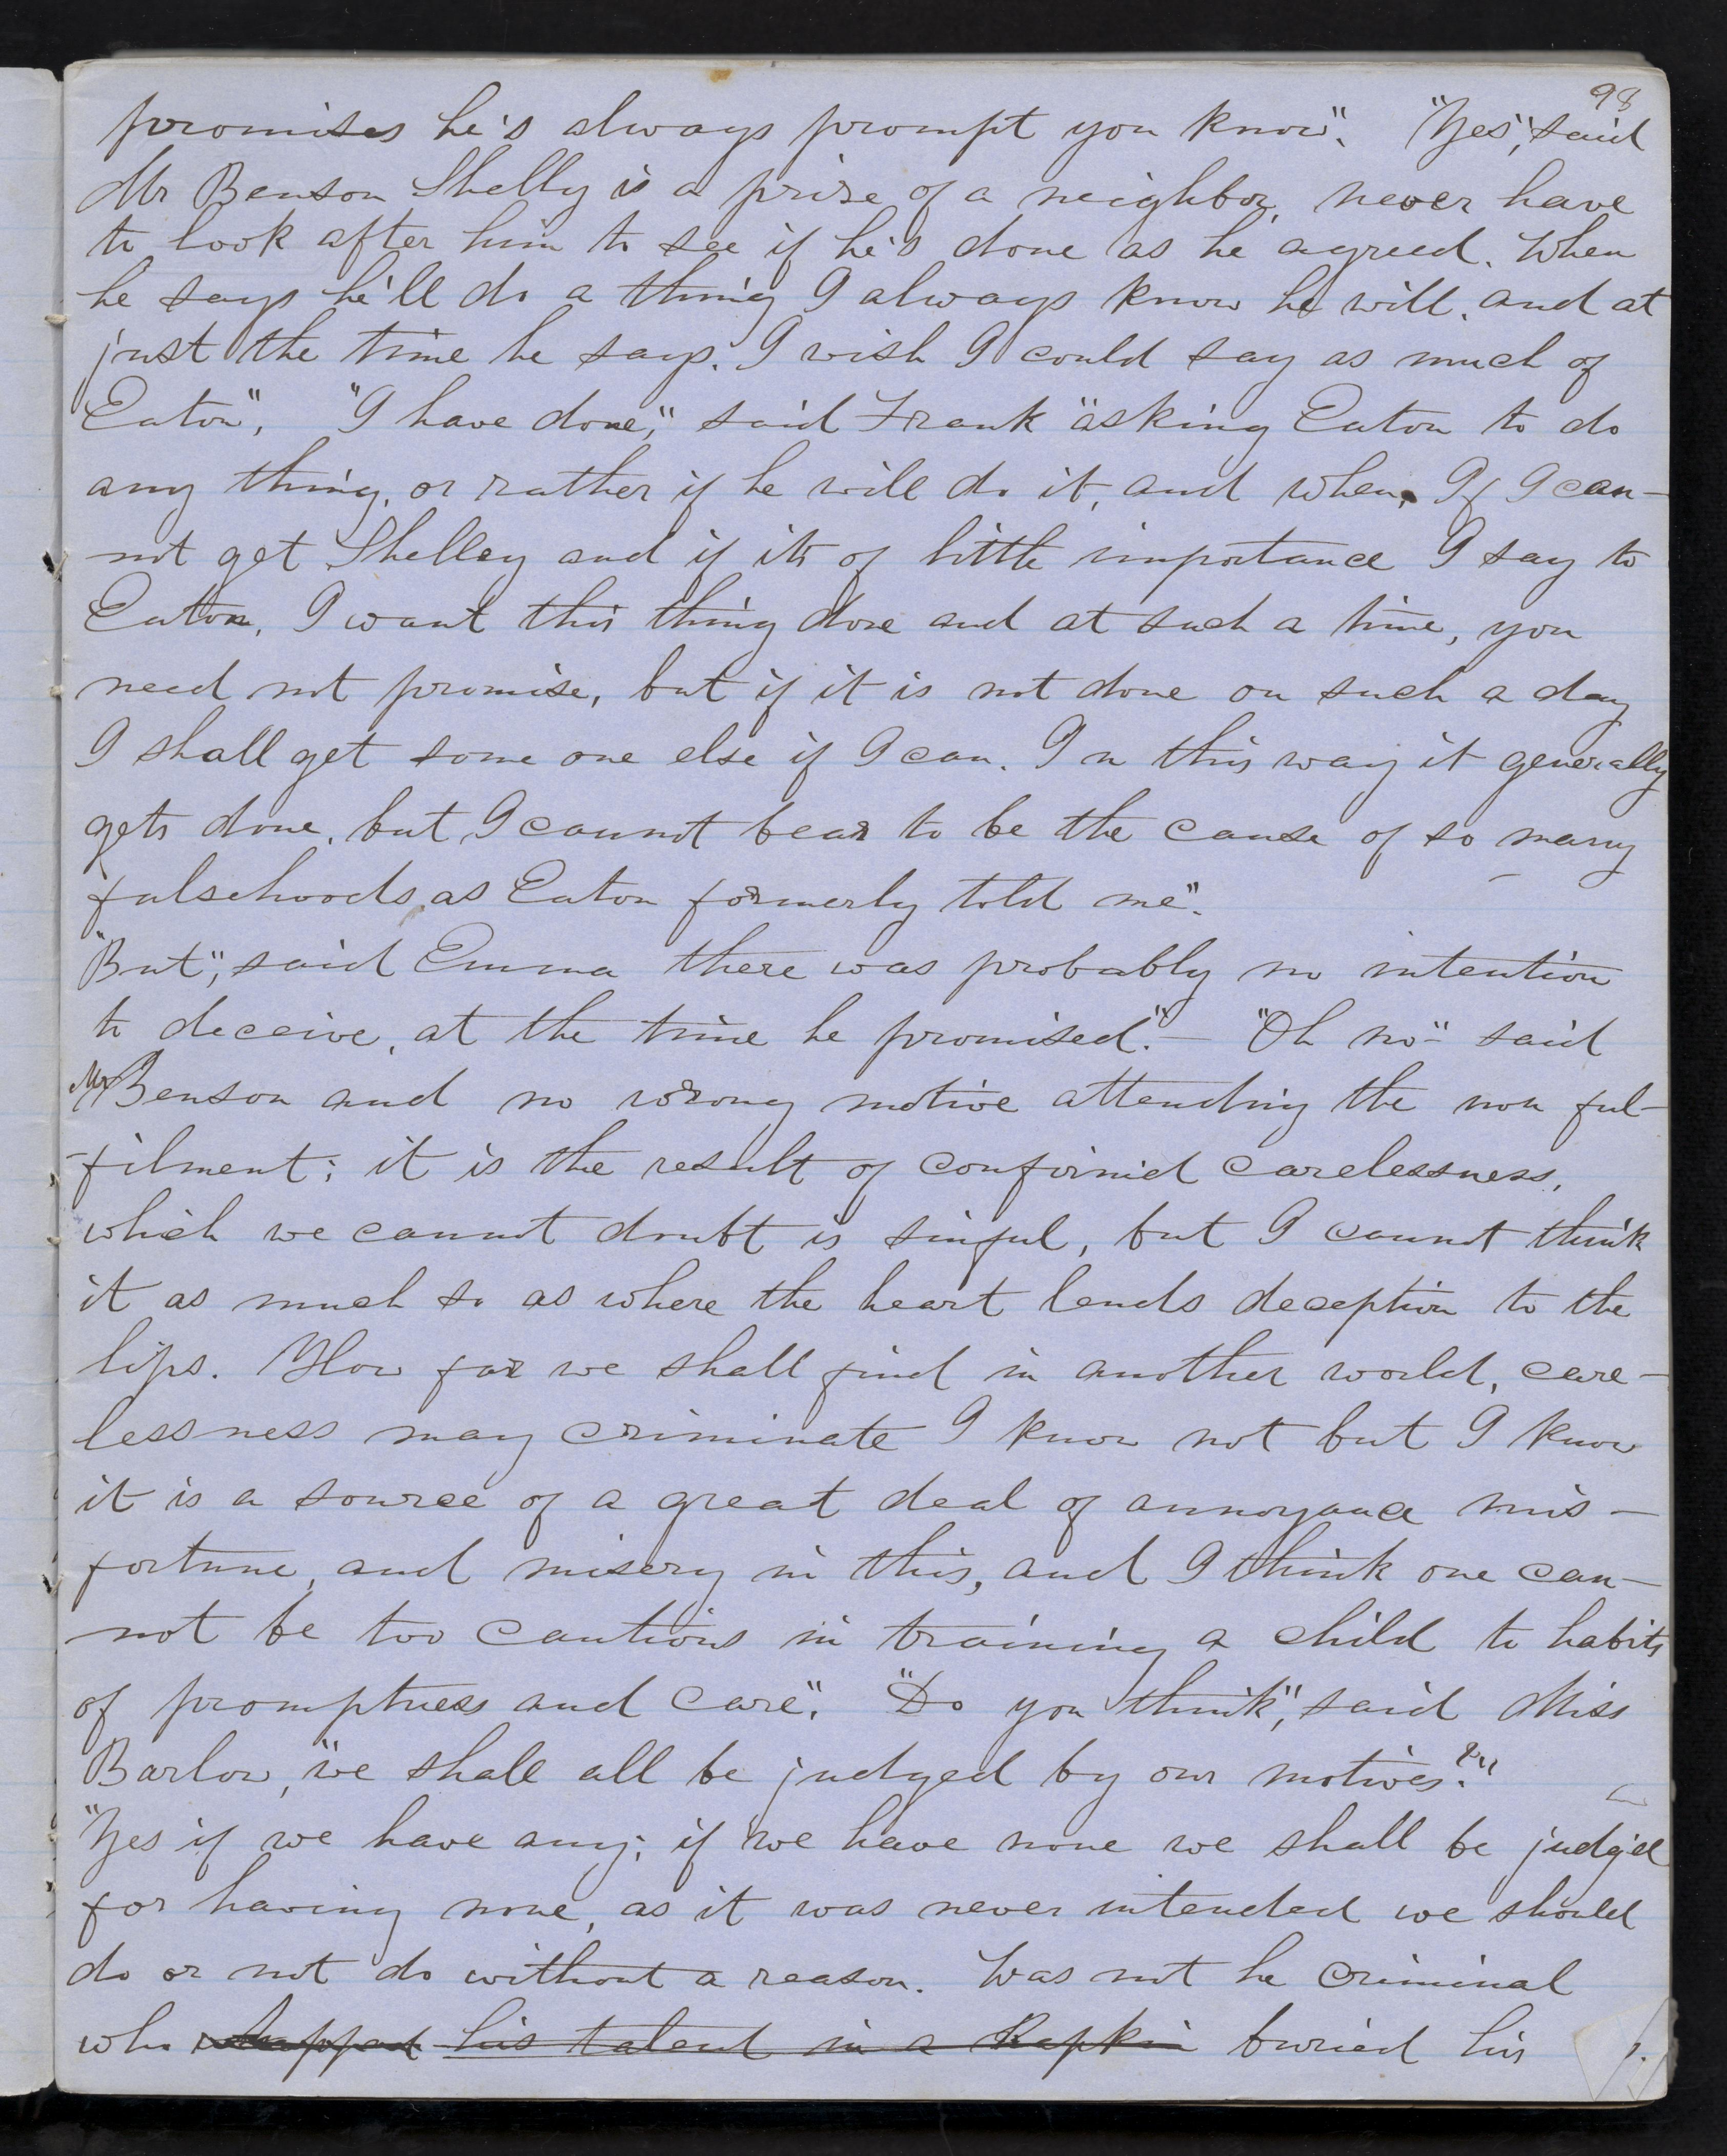 98
promises he's always prompt you know". "Yes", said
Mr Benson Shelly is a prize of a neighbor, never have
to look after him to see if he's done as he agreed. When
he says he'll do a thing I always know he will, and at
just the time he says. I wish I could say as much of
Eaton". "I have done", said Frank "asking Eaton to do
any thing, or rather if he will do it, and when. If I can-
not get Shelley and if its of little importance I say to
Eaton, I want this thing done and at such a time, you
need not promise, but if it is not done on such a day
I shall get some one else if I can. In this way it generally
gets done, but I cannot bear to be the cause of so many
falsehoods as Eaton formerly told me".
"But", said Emma there was probably no intention
to deceive, at the time he promised".— "Oh no" said
Mr Benson and no wrong motive attending the non ful-
-filment; it is the result of confirmed carelessness,
which we cannot doubt is sinful, but I cannot think
it as much so as where the heart lends deception to the
lips. How far we shall find in another world, care-
lessness may criminate I know not but I know
it is a source of a great deal of annoyance mis-
fortune, and misery in this, and I think one can-
not be too cautious in training a child to habits
of promptness and care". "Do you think", said Miss
Barlow, "we shall all be judged by our motives?"
"Yes if we have any; if we have none we shall be judg'd
for having none, as it was never intended we should
do or not do without a reason. Was not he criminal
who whapped his talent in a napkin buried his